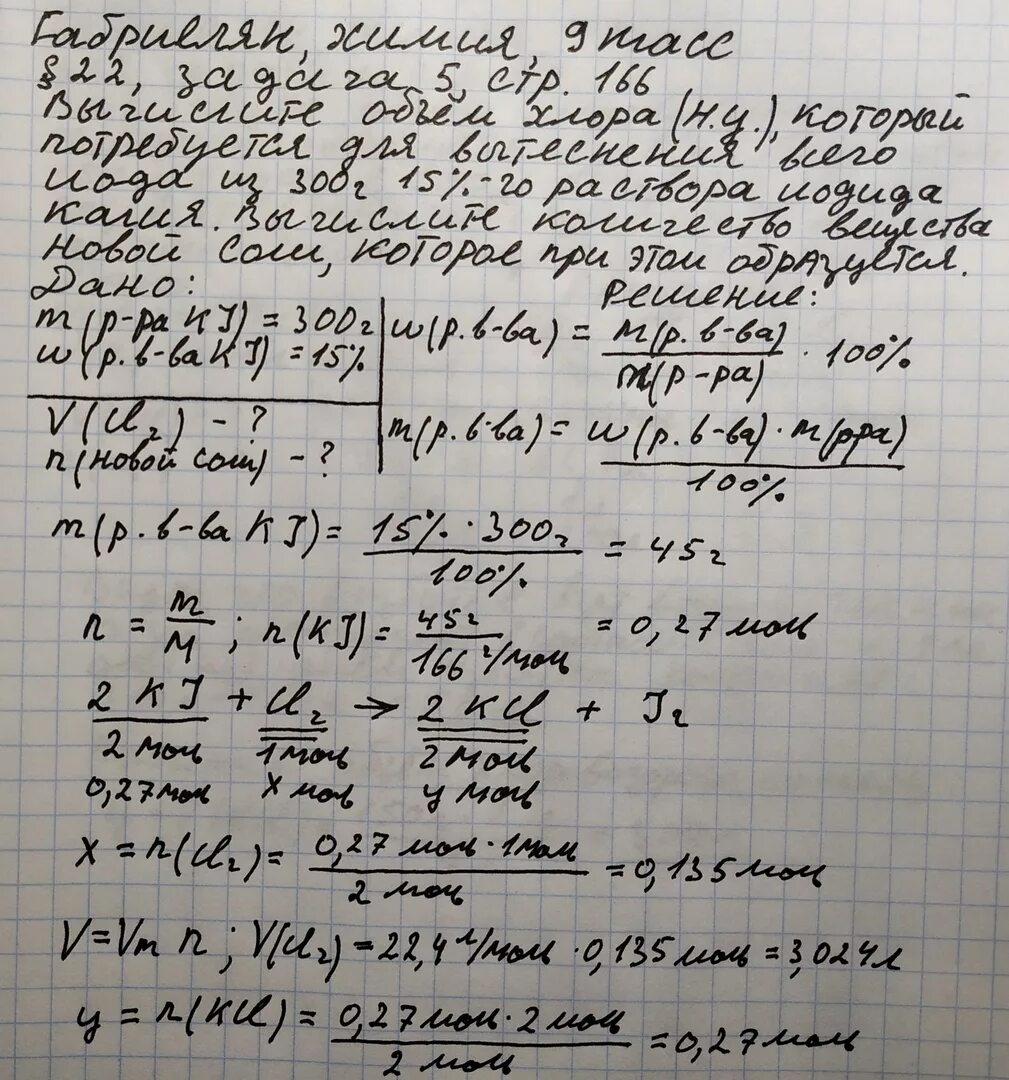 Габриелян, химия, 9 класс
§ 22, задача 5, стр. 166
Вычислите объём хлора (н.у.), который
потребуется для вытеснения всего
иода из 300г 15%-го раствора иодида
калия. Вычислите количество вещества
новой соли, которое при этом образуется.
Дано:
m(р-ра KJ) = 300г
w(р.в-ва KJ) = 15%
V(Cl₂) - ?
n(новой соли) - ?
Решение:
w(р.в-ва) = m(р.в-ва) / m(р-ра) · 100%
m(р.в-ва) = w(р.в-ва) · m(рра) / 100%
m(р.в-ва KJ) = 15% · 300г / 100% = 45г
n = m / M ; n(KJ) = 45г / 166 г/моль = 0,27 моль
2KJ + Cl₂ → 2KCl + J₂
2 моль 1 моль 2 моль
0,27 моль х моль у моль
х = n(Cl₂) = 0,27 моль · 1 моль / 2 моль = 0,135 моль
V = Vm n ; V(Cl₂) = 22,4 л/моль · 0,135 моль = 3,024 л
у = n(KCl) = 0,27 моль · 2 моль / 2 моль = 0,27 моль